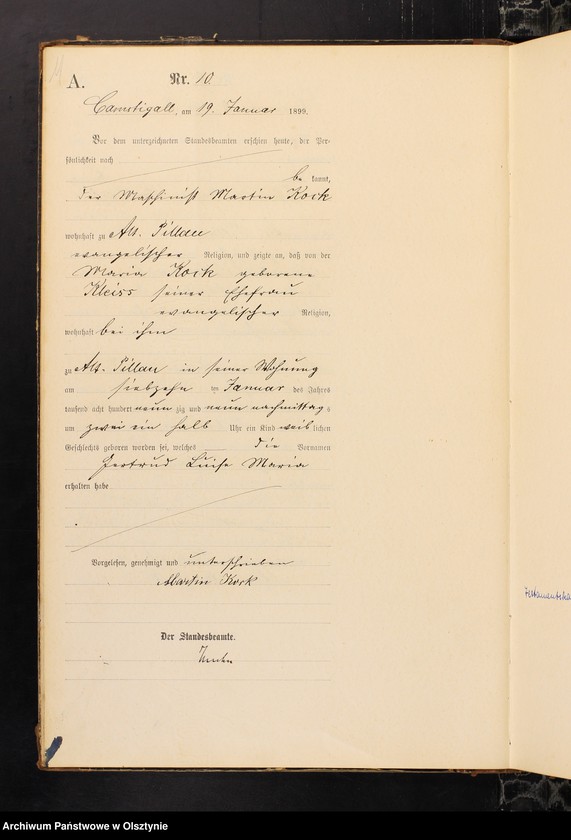 A.
Nr. 10
Camstigall, am 19. Januar 1899.
Vor dem unterzeichneten Standesbeamten erschien heute, der Per-
sönlichkeit nach
be kannt,
der Maschinist Martin Kock
wohnhaft zu Alt. Pillau
evangelischer Religion, und zeigte an, daß von der
Maria Kock geborene
Kleiss seiner Ehefrau
evangelischer Religion,
wohnhaft bei ihm
zu Alt. Pillau in seiner Wohnung
am siebzehn ten Januar des Jahres
tausend acht hundert neun zig und neun nachmittag s
um zwei ein halb Uhr ein Kind weib lichen
Geschlechts geboren worden sei, welches die Vornamen
Gertrud Luise Maria
erhalten habe
Vorgelesen, genehmigt und unterschrieben
Martin Kock
Der Standesbeamte.
Archiwum Państwowe w Olsztynie